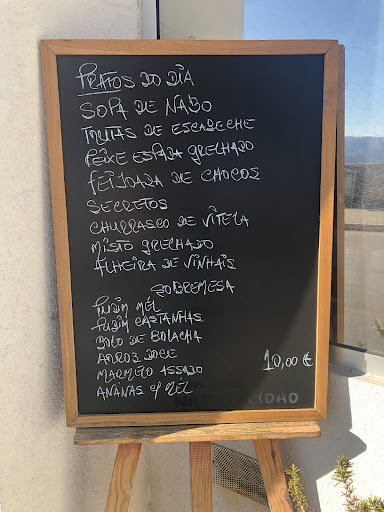 PRATOS DO DIA
SOPA DE NABO
TRUTAS DE ESCABECHE
PEIXE ESPADA GRELHADO
FEIJOADA DE CHOCOS
SECRETOS
CHURRASCO DE VITELA
MISTO GRELHADO
ALHEIRA DE VINHAIS
SOBREMESA
PUDIM MÉL
PUDIM CASTANHAS
BOLO DE BOLACHA
ARROZ DOCE
10,00 €
MARMELO ASSADO
ANANÁS C/ MÉL